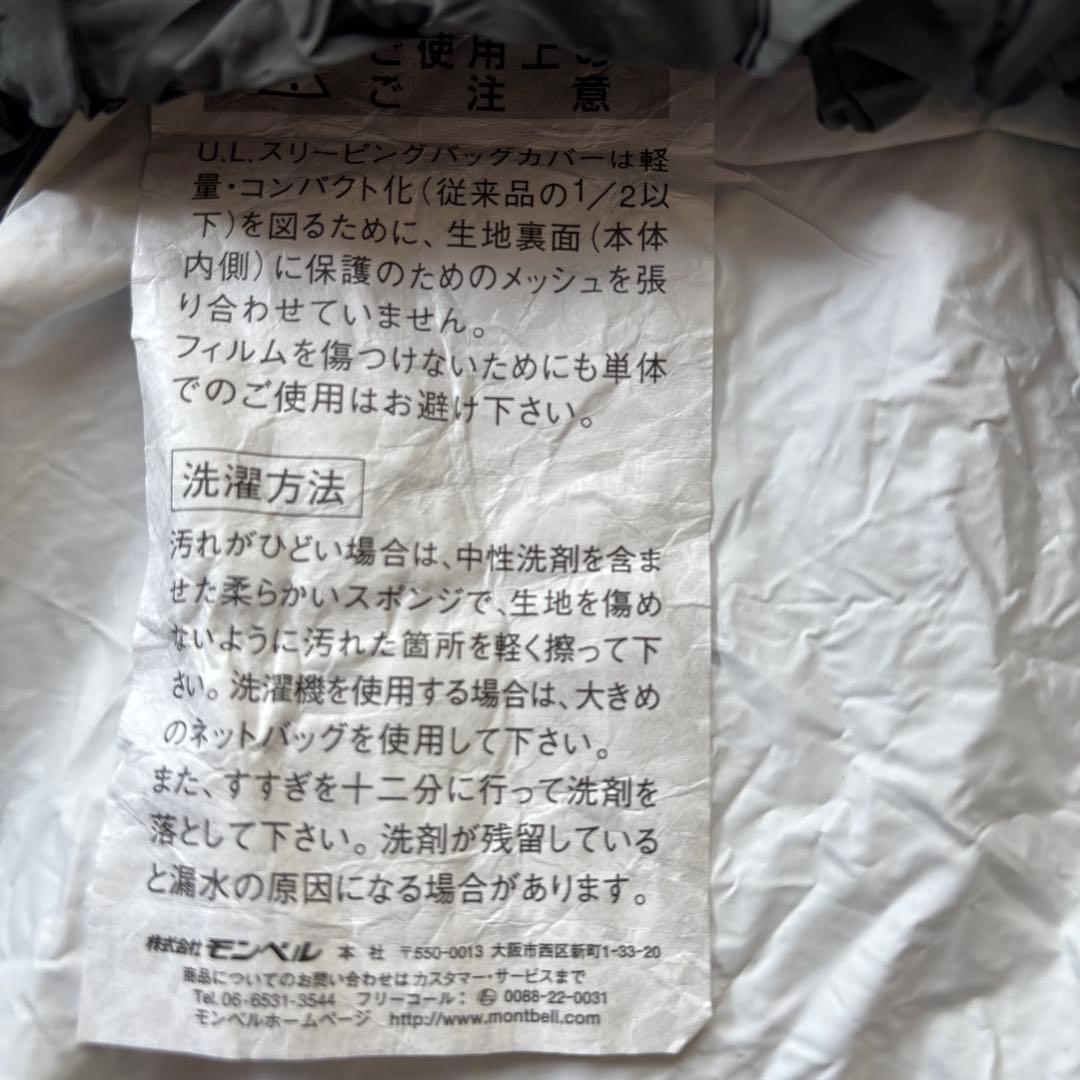 ご使用上の
ご注意
U.L.スリーピングバッグカバーは軽
量・コンパクト化(従来品の1/2以
下)を図るために、生地裏面(本体
内側)に保護のためのメッシュを張
り合わせていません。
フィルムを傷つけないためにも単体
でのご使用はお避け下さい。
洗濯方法
汚れがひどい場合は、中性洗剤を含ま
せた柔らかいスポンジで、生地を傷め
ないように汚れた箇所を軽く擦って下
さい。洗濯機を使用する場合は、大きめ
のネットバッグを使用して下さい。
また、すすぎを十二分に行って洗剤を
落として下さい。洗剤が残留している
と漏水の原因になる場合があります。
株式会社 モンベル 本社 〒550-0013 大阪市西区新町1-33-20
商品についてのお問い合わせはカスタマー・サービスまで
Tel.06-6531-3544 フリーコール: 0088-22-0031
モンベルホームページ http://www.montbell.com